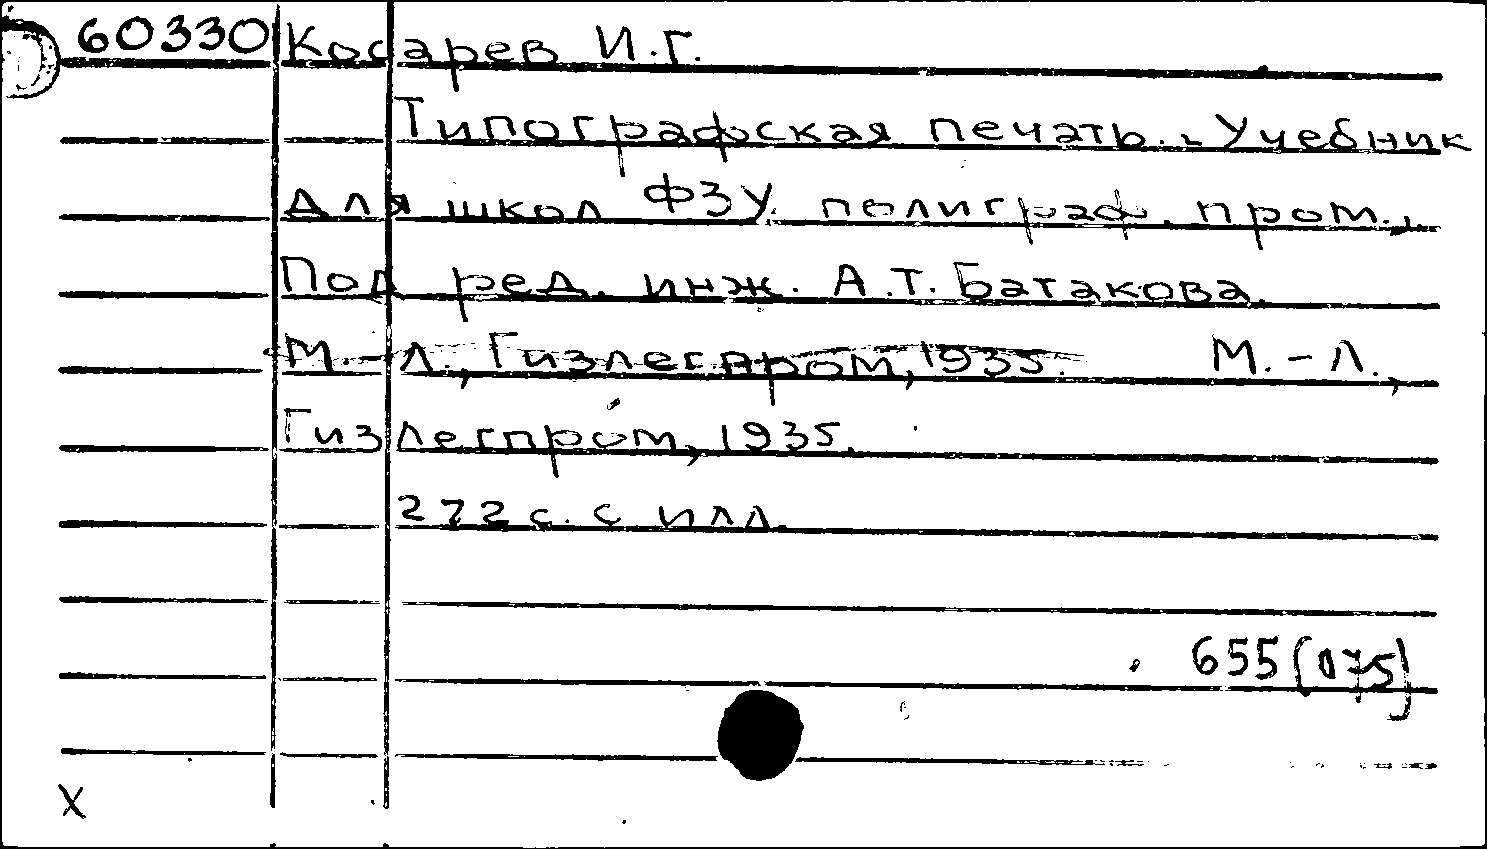 60330 Косарев И.Г.
Типографская печать. - Учебник
для школ ФЗУ полиграф. пром.,
Под ред. инж. А.Т. Батакова.
М.-Л., Гизлегпром, 1935. М.-Л.,
Гизлегпром, 1935.
272 с. с илл.
655(075)
X